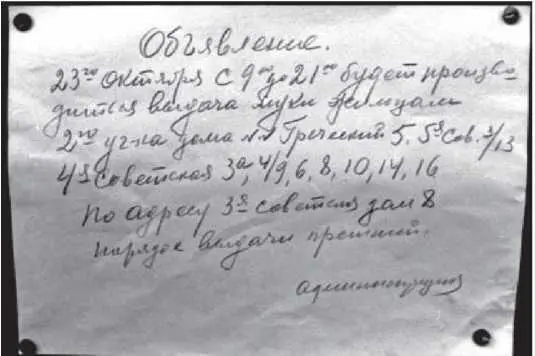 Объявление.
23го октября с 9го до 21го будет произво-
дится выдача муки жильцам
2го уч-ка дома №№ Греческий 5, 5я Сов. 3/13
4я советская 3а, 4/9, 6, 8, 10, 14, 16
по адресу 3я советская дом 8
порядок выдачи прежний.
администрация